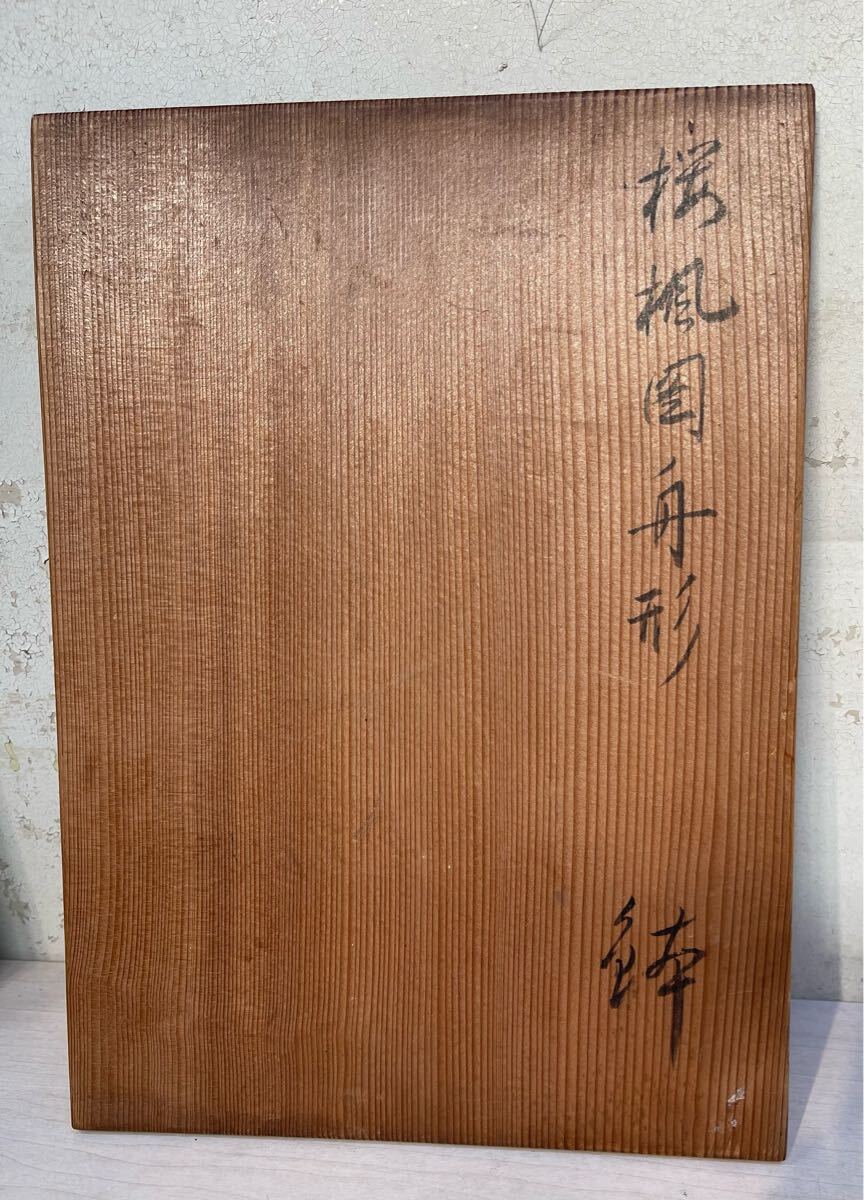 桜楓図舟形 鉢